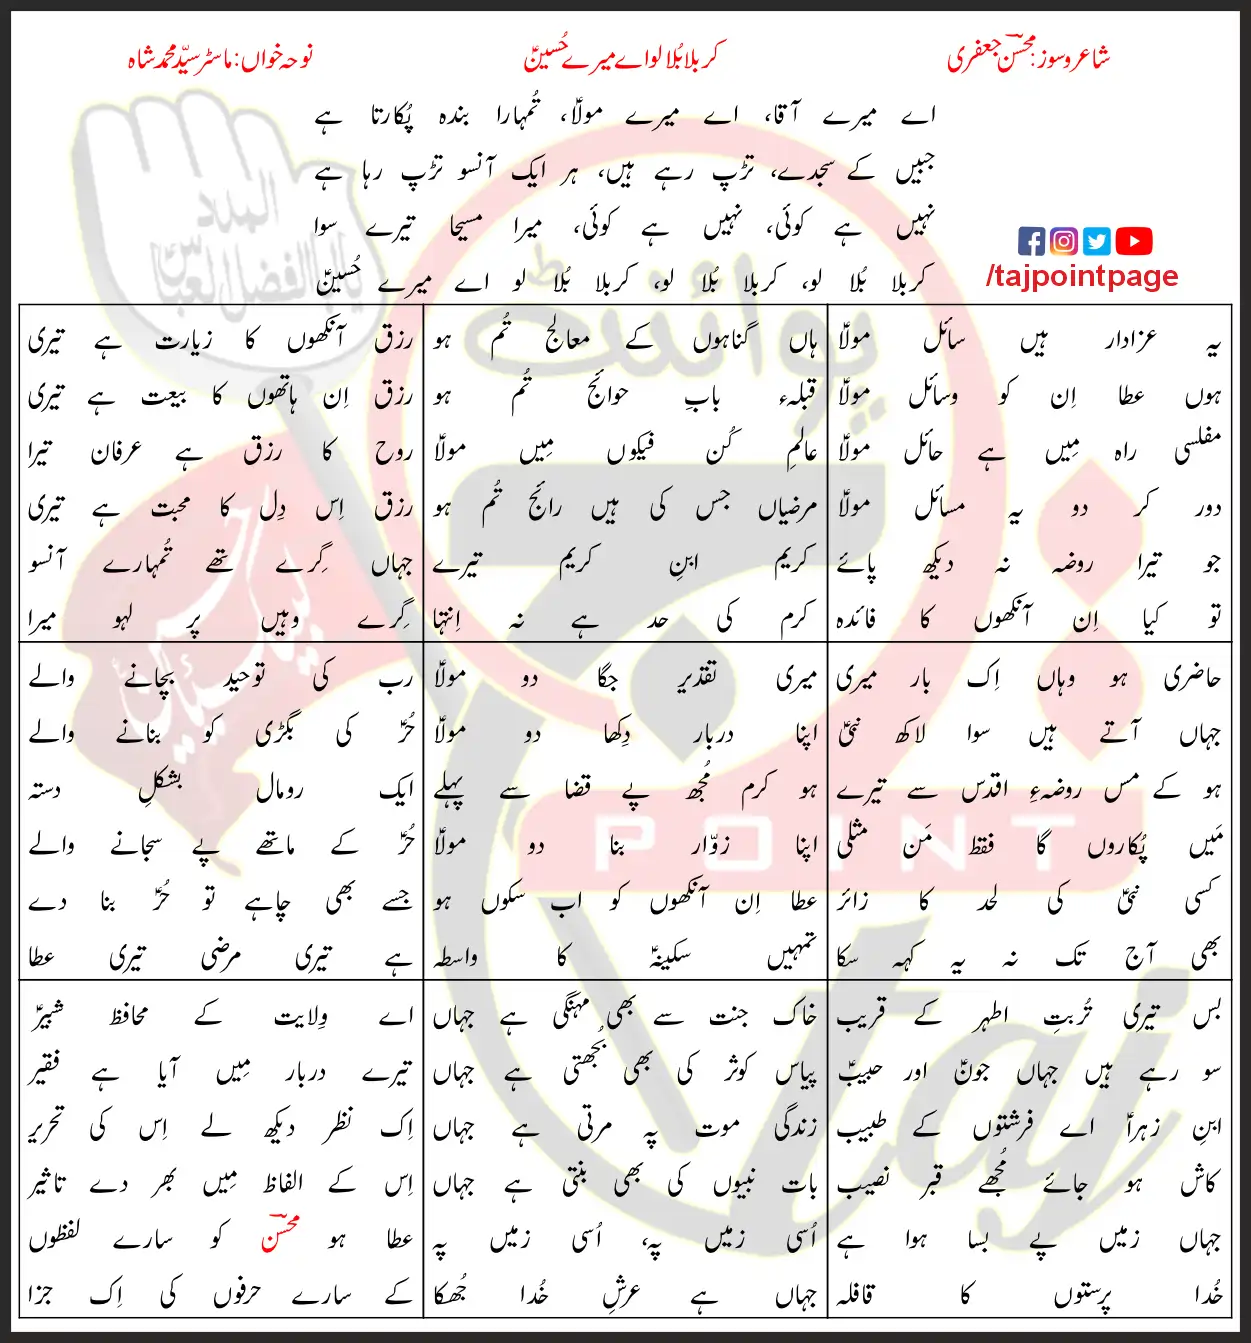 شاعر و سوز: محسنؔ جعفری
کربلا بُلا لو اے میرے حُسینؑ
نوحہ خواں: ماسٹر سیّد محمد شاہ
اے میرے آقا، اے میرے مولاؑ، تُمہارا بندہ پُکارتا ہے
جبیں کے سجدے، تڑپ رہے ہیں، ہر ایک آنسو تڑپ رہا ہے
نہیں ہے کوئی، نہیں ہے کوئی، میرا مسیحا تیرے سوا
کربلا بُلا لو، کربلا بُلا لو، کربلا بُلا لو اے میرے حُسینؑ
/tajpointpage
یہ عزادار ہیں سائل مولاؑ
ہوں عطا اِن کو وسائل مولاؑ
مفلسی راہ مِیں ہے حائل مولاؑ
دور کر دو یہ مسائل مولاؑ
جو تیرا روضہ نہ دیکھ پائے
تو کیا اِن آنکھوں کا فائدہ
ہاں گناہوں کے معالج تُم ہو
قبلہء بابِ حوائج تُم ہو
عالمِ کُن فیکوں مِیں مولاؑ
مرضیاں جس کی ہیں رائج تُم ہو
کریم ابنِ کریم تیرے
کرم کی حد ہے نہ اِنتہا
رزق آنکھوں کا زیارت ہے تیری
رزق اِن ہاتھوں کا بیعت ہے تیری
روح کا رزق ہے عرفان تیرا
رزق اِس دِل کا محبت ہے تیری
جہاں گِرے تھے تُمہارے آنسو
گِرے وہیں پر لہو میرا
حاضری ہو وہاں اِک بار میری
جہاں آتے ہیں سوا لاکھ نبیؑ
ہو کے مس روضہءِ اقدس سے تیرے
مَیں پُکاروں گا فقط مَن مثلی
کسی نبیؑ کی لحد کا زائر
بھی آج تک نہ یہ کہہ سکا
میری تقدیر جگا دو مولاؑ
اپنا دربار دِکھا دو مولاؑ
ہو کرم مُجھ پے قضا سے پہلے
اپنا زوّار بنا دو مولاؑ
عطا اِن آنکھوں کو اب سکوں ہو
تمہیں سکینہؑ کا واسطہ
رب کی توحید بچانے والے
حُرؑ کی بگڑی کو بنانے والے
ایک رومال بشکلِ دستہ
حُرؑ کے ماتھے پے سجانے والے
جسے بھی چاہے تو حُرؑ بنا دے
ہے تیری مرضی تیری عطا
بس تیری تُربتِ اطہر کے قریب
سو رہے ہیں جہاں جونؑ اور حبیبؑ
ابنِ زہراؑ اے فرشتوں کے طبیب
کاش ہو جائے مُجھے قبر نصیب
جہاں زمیں پے بسا ہوا ہے
خُدا پرستوں کا قافلہ
خاک جنت سے بھی مہنگی ہے جہاں
پیاس کوثر کی بھی بُجھتی ہے جہاں
زندگی موت پہ مرتی ہے جہاں
بات نبیوں کی بھی بنتی ہے جہاں
اُسی زمیں پہ، اُسی زمیں پہ
جہاں ہے عرشِ خُدا جُھکا
اے وِلایت کے محافظ شبیرؑ
تیرے دربار مِیں آیا ہے فقیر
اِک نظر دیکھ لے اِس کی تحریر
اِس کے الفاظ مِیں بھر دے تاثیر
عطا ہو محسنؔ کو سارے لفظوں
کے سارے حرفوں کی اِک جزا
المدد
یا ابالفضل العباسؑ
پوائنٹ
POINT
taj